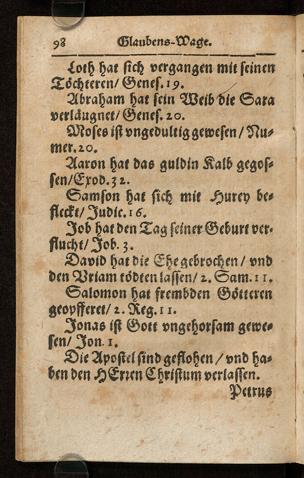 98 Glaubens-Wage.
Loth hat sich vergangen mit seinen
Töchteren/ Genes. 19.
Abraham hat sein Weib die Sara
verläugnet/ Genes. 20.
Moses ist vngedultig gewesen/ Nu-
mer. 20.
Aaron hat das guldin Kalb gegos-
sen/ Exod. 32.
Samson hat sich mit Hurey be-
fleckt/ Judic. 16.
Job hat den Tag seiner Geburt ver-
flucht/ Job. 3.
David hat die Ehe gebrochen/ vnd
den Vriam tödten lassen/ 2. Sam. 11.
Salomon hat frembden Götteren
geopfferet/ 2. Reg. 11.
Jonas ist Gott vngehorsam gewe-
sen/ Jon. 1.
Die Apostel sind geflohen/ vnd ha-
ben den HErren Christum verlassen.
Petrus